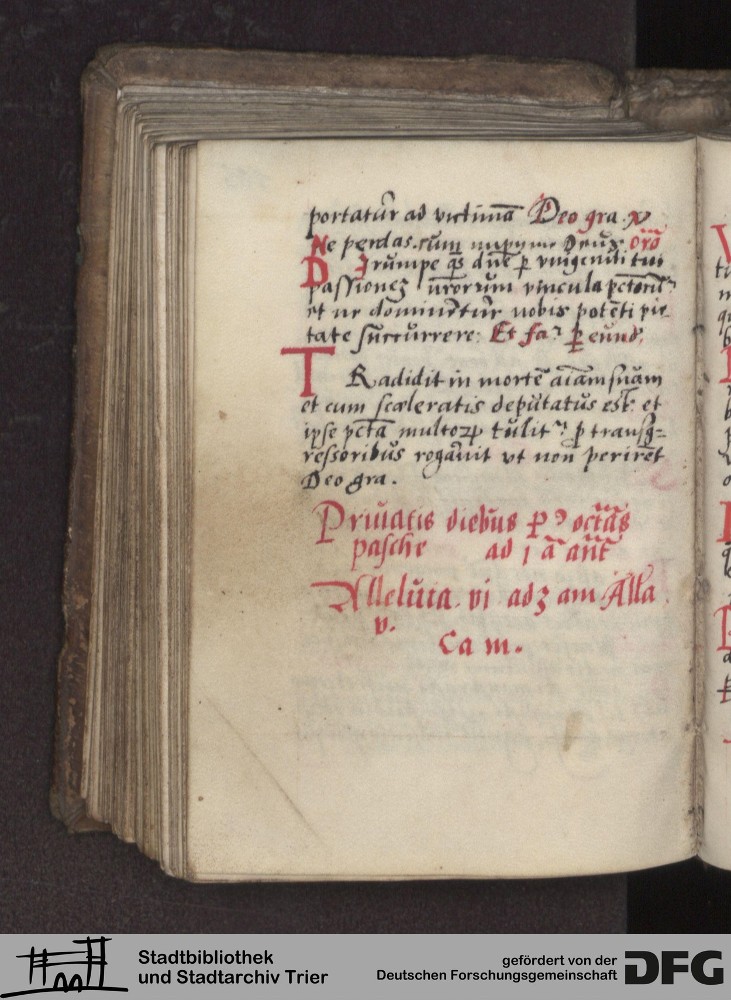 portatur ad victimā Deo gra. ꝟ
Ne perdas. cum impijs Deus. orō
DJrumpe q̄s dn̄e ꝑ vnigeniti tui
passionez nr̄orum vincula pctōrū
et ne dominētur nobis potēti pie-
tate succurrere. Et fa. ꝑ eund.
TRadidit in mortē aīam suam
et cum sceleratis deputatus est. et
ipse pctā multorꝝ tulit. ꝑ transg=
ressoribus rogauit vt non perirēt
Deo gra.
Priuatis diebus ꝑ octās
pasche ad j ā ant
Alleluia. vi ad z am Alla
v.
Ca m.
Stadtbibliothek
und Stadtarchiv Trier
gefördert von der
Deutschen Forschungsgemeinschaft
DFG